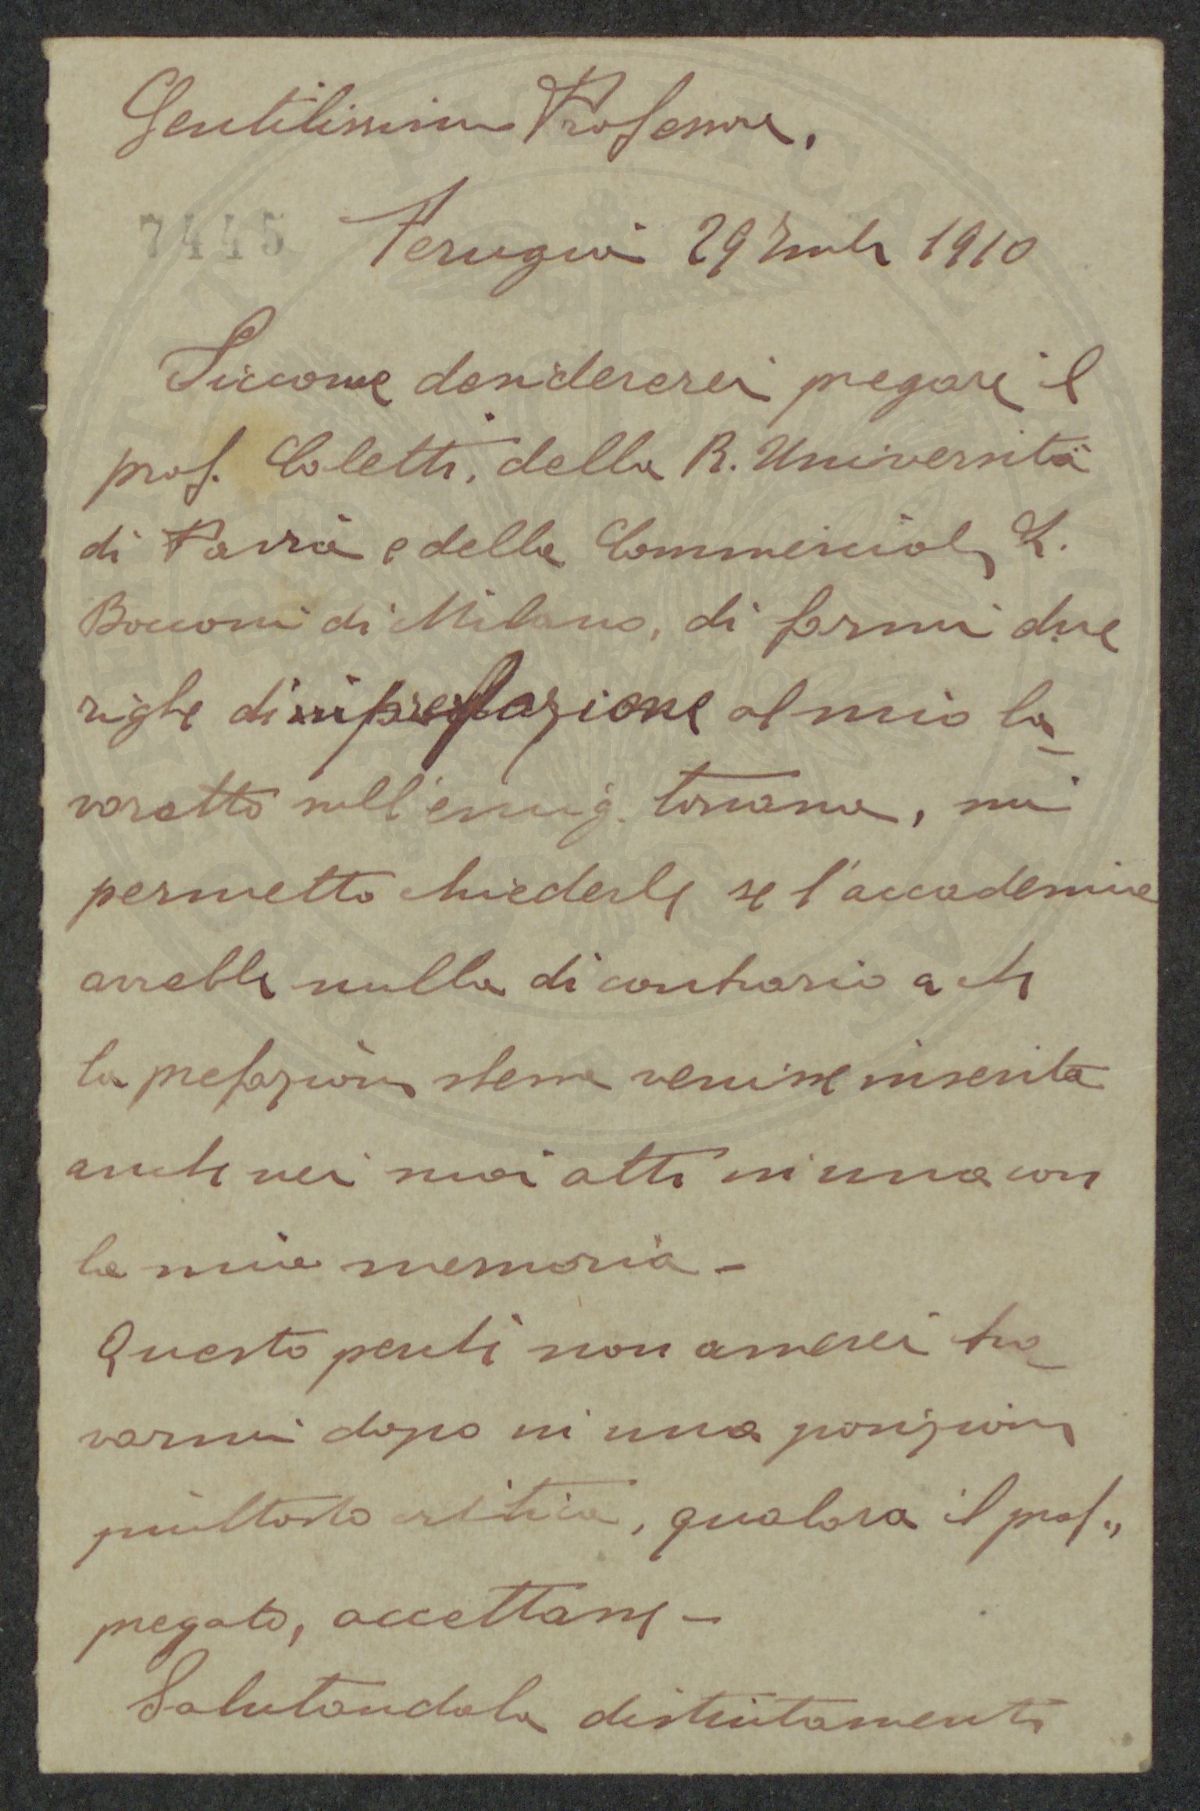 Gentilissimo Professore,
7445
Perugia 29 1910
Siccome desidererei pregare il
prof. Coletti, della R. Università
di Pavia e della Commerciale L.
Bocconi di Milano, di farmi due
righe di prefazione al mio la-
voretto sull'emig. toscana, mi
permetto chiederle se l'accademia
avrebbe nulla di contrario a che
la prefazione stessa venisse inserita
anche nei suoi atti in una con
la mia memoria -
Questo perchè non amerei tro-
varmi dopo in una posizione
piuttosto critica, qualora il prof.,
pregato, accettasse -
Salutandola distintamente